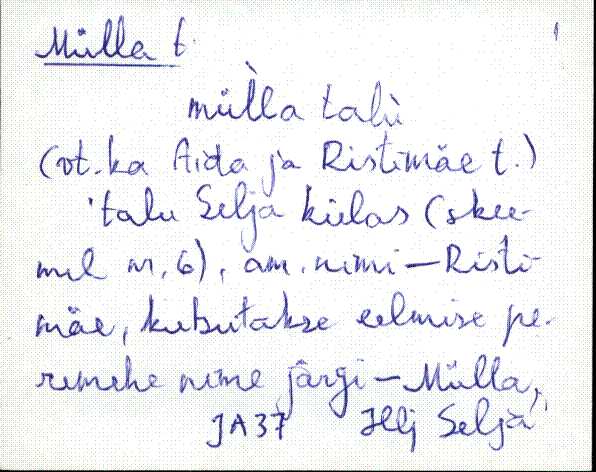 Mülla t.
1
mùl̀la talù
(vt. ka Aida ja Ristimäe t.)
'talu Selja külas (skee-
mil nr. 6), am. nimi – Risti-
mäe, kutsutakse eelmise pe-
remehe nime järgi – Mülla,
JA37 Hlj Selja'